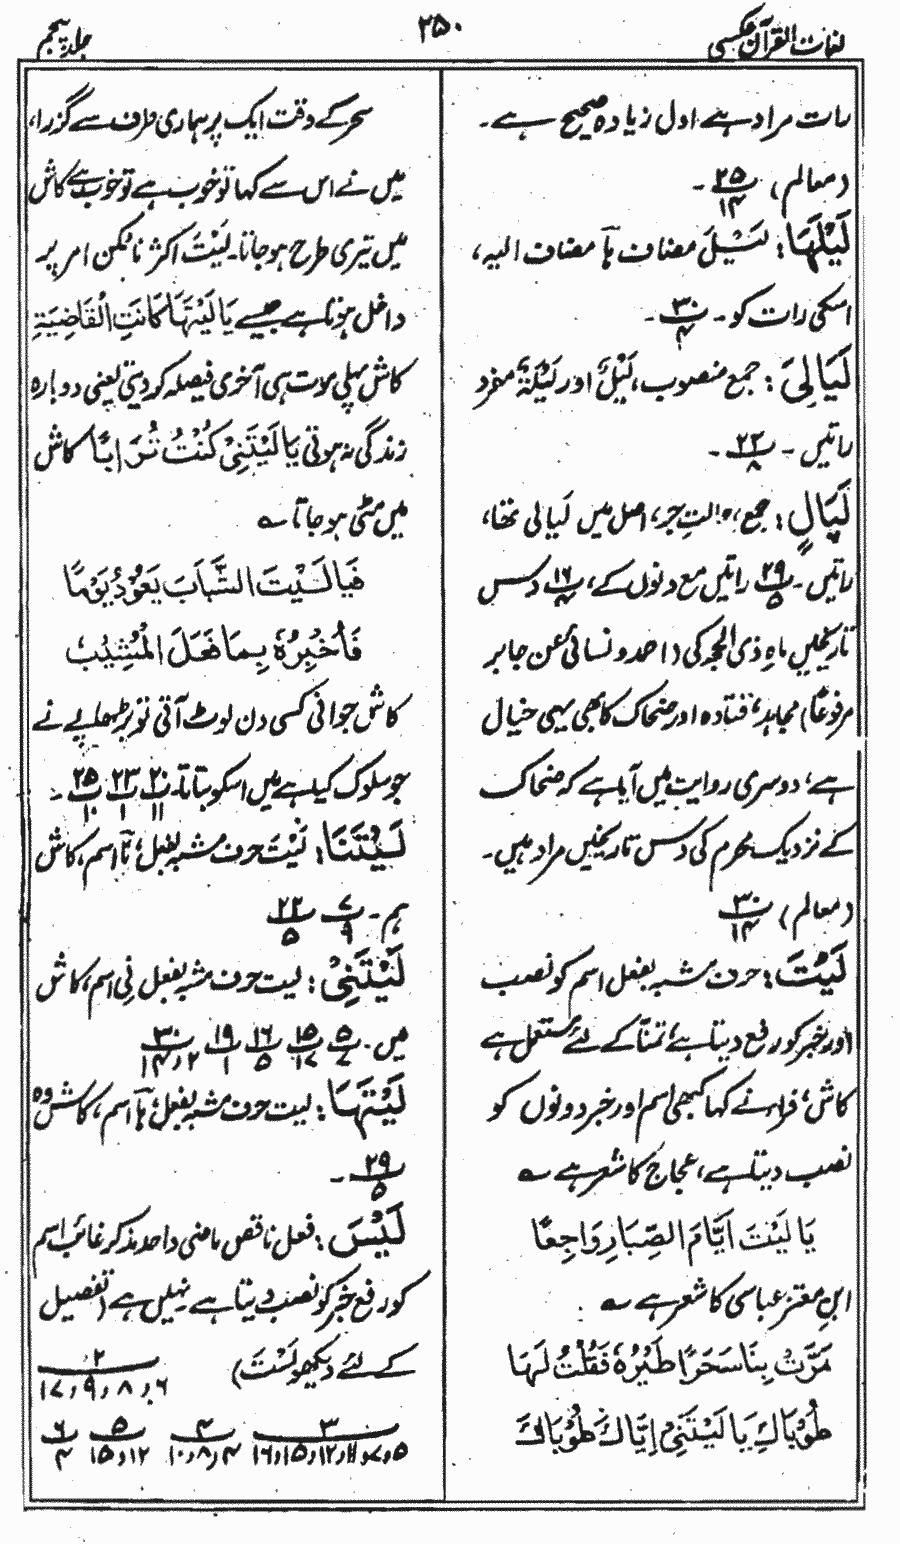 لغات القرآن عکسی
۳۵۰
جلد پنجم
رات مراد ہے اول زیادہ صحیح ہے۔
(معالم) ۲۵/۱۴ ۔
لَيْلَهَا: لَيْلَ مضاف ہَا مضاف الیہ،
اسکی رات کو۔ ۳۰/۴ ۔
لَيَالِيَ: جمع منصوب، لَيْلٌ اور لَيْلَةٌ مفرد
راتیں ۔ ۲۲/۸ ۔
لَيَالٍ: جمع، حالتِ جر، اصل میں لَیَالی تھا،
راتیں۔ ۲۹/۵ راتیں مع دنوں کے، ۱۶/۴ دس
تاریخیں ماہِ ذی الحجہ کی (احمد و نسائی عن جابر
مرفوعًا) مجاہد، قتادہ اور ضحاک کا بھی یہی خیال
ہے، دوسری روایت میں آیا ہے کہ ضحاک
کے نزدیک محرم کی دس تاریخیں مراد ہیں۔
(معالم) ۳۰/۱۴
لَيْتَ: حرف مشبہ بفعل اسم کو نصب
اور خبر کو رفع دیتا ہے، تمنّا کے لئے مستعمل ہے
کاش، فراء نے کہا کبھی اسم اور خبر دونوں کو
نصب دیتا ہے، عجاج کا شعر ہے ؎
يَا لَيْتَ اَيَّامَ الصِّبَا رَوَاجِعًا
ابنِ معتز عباسی کا شعر ہے ؎
مَرَّتْ بِنَا سَحَرًا طَيْرٌ فَقُلْتُ لَهَا
طُوْبَاكِ يَا لَيْتَنِيْ اِيَّاكَ طُوْبَاكَ
سحر کے وقت ایک پر ہماری طرف سے گزرا،
میں نے اس سے کہا تو خوب ہے تو خوب ہے کاش
میں تیری طرح ہو جاتا۔ لَيْتَ اکثر ناممکن امر پر
داخل ہوتا ہے جیسے يَا لَيْتَهَا كَانَتِ الْقَاضِيَةَ
کاش پہلی موت ہی آخری فیصلہ کر دیتی یعنی دوبارہ
زندگی نہ ہوتی يَا لَيْتَنِيْ كُنْتُ تُرَابًا کاش
میں مٹی ہو جاتا ؎
فَيَا لَيْتَ الشَّبَابَ يَعُوْدُ يَوْمًا
فَأُخْبِرُهُ بِمَا فَعَلَ الْمَشِيْبُ
کاش جوانی کسی دن لوٹ آتی تو بڑھاپے نے
جو سلوک کیا ہے میں اسکو بتاتا۔ ۲۰/۱۱ ۲۳/۱ ۲۵/۱۰ ۔
لَيْتَنَا: لَيْتَ حرف مشبہ بفعل، نَا اسم، کاش
ہم ۔ ۷/۹ ۲۲/۵
لَيْتَنِيْ: لیت حرف مشبہ بفعل نِی اسم، کاش
میں ۔ ۵/۷ ۱۵/۱۷ ۱۶/۵ ۱۹/۱ ۳۰/۱۴،۲
لَيْتَهَا: لیت حرف مشبہ بفعل، ہَا اسم، کاش وہ
۲۹/۵ ۔
لَيْسَ: فعل ناقص ماضی واحد مذکر غائب اسم
کو رفع خبر کو نصب دیتا ہے نہیں ہے (تفصیل
کے لئے دیکھو لَسْتَ) ۲/۶،۸،۹،۱۷
۳/۵،۷،۱۱،۱۲،۱۵،۱۶ ۴/۴،۸،۱۰ ۵/۱۲،۱۵ ۶/۴